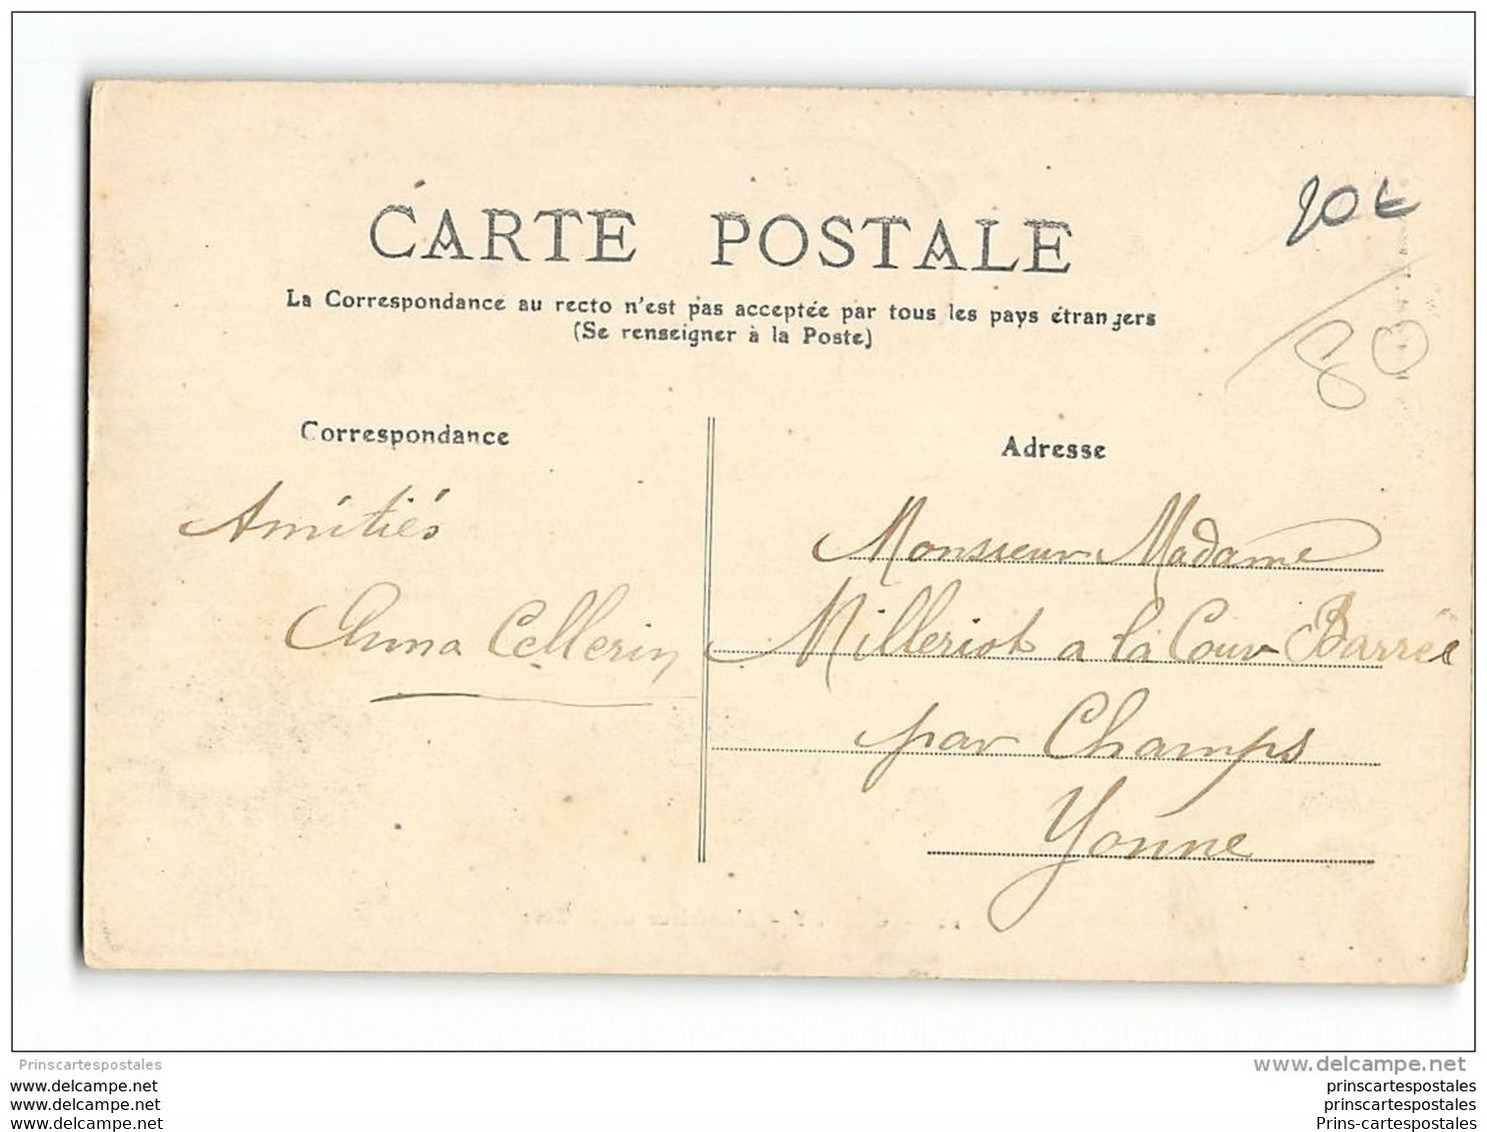 20€
CARTE POSTALE
La Correspondance au recto n'est pas acceptée par tous les pays étrangers
(Se renseigner à la Poste)
Correspondance
Amitiés
Anna Cellerin
Adresse
Monsieur Madame
Milleriot a la Cour Barrée
par Champs
Yonne
Prinscartespostales
www.delcampe.net
www.delcampe.net
www.delcampe.net
www.delcampe.net
prinscartespostales
prinscartespostales
Prins-cartespostales